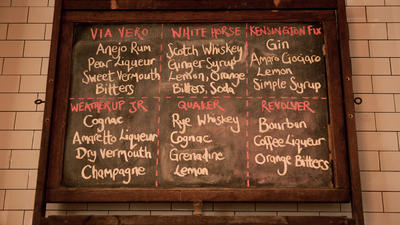 VIA VERO
Anejo Rum
Pear Liqueur
Sweet Vermouth
Bitters
WHITE HORSE
Scotch Whiskey
Ginger Syrup
Lemon, Orange,
Bitters, Soda
KENSINGTON FIX
Gin
Amaro Ciociaro
Lemon
Simple Syrup
WEATHERUP JR
Cognac
Amaretto Liqueur
Dry Vermouth
Champagne
QUAKER
Rye Whiskey
Cognac
Grenadine
Lemon
REVOLVER
Bourbon
Coffee Liqueur
Orange Bitters